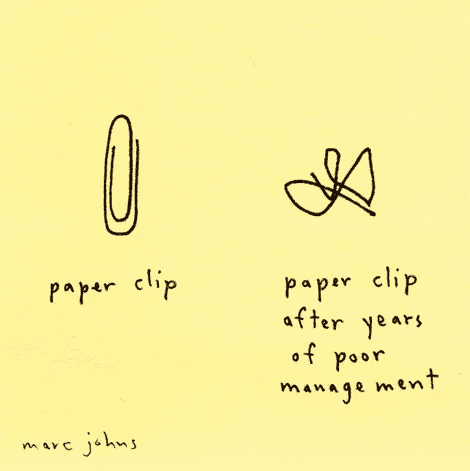 paper clip
paper clip
after years
of poor
management
marc johns